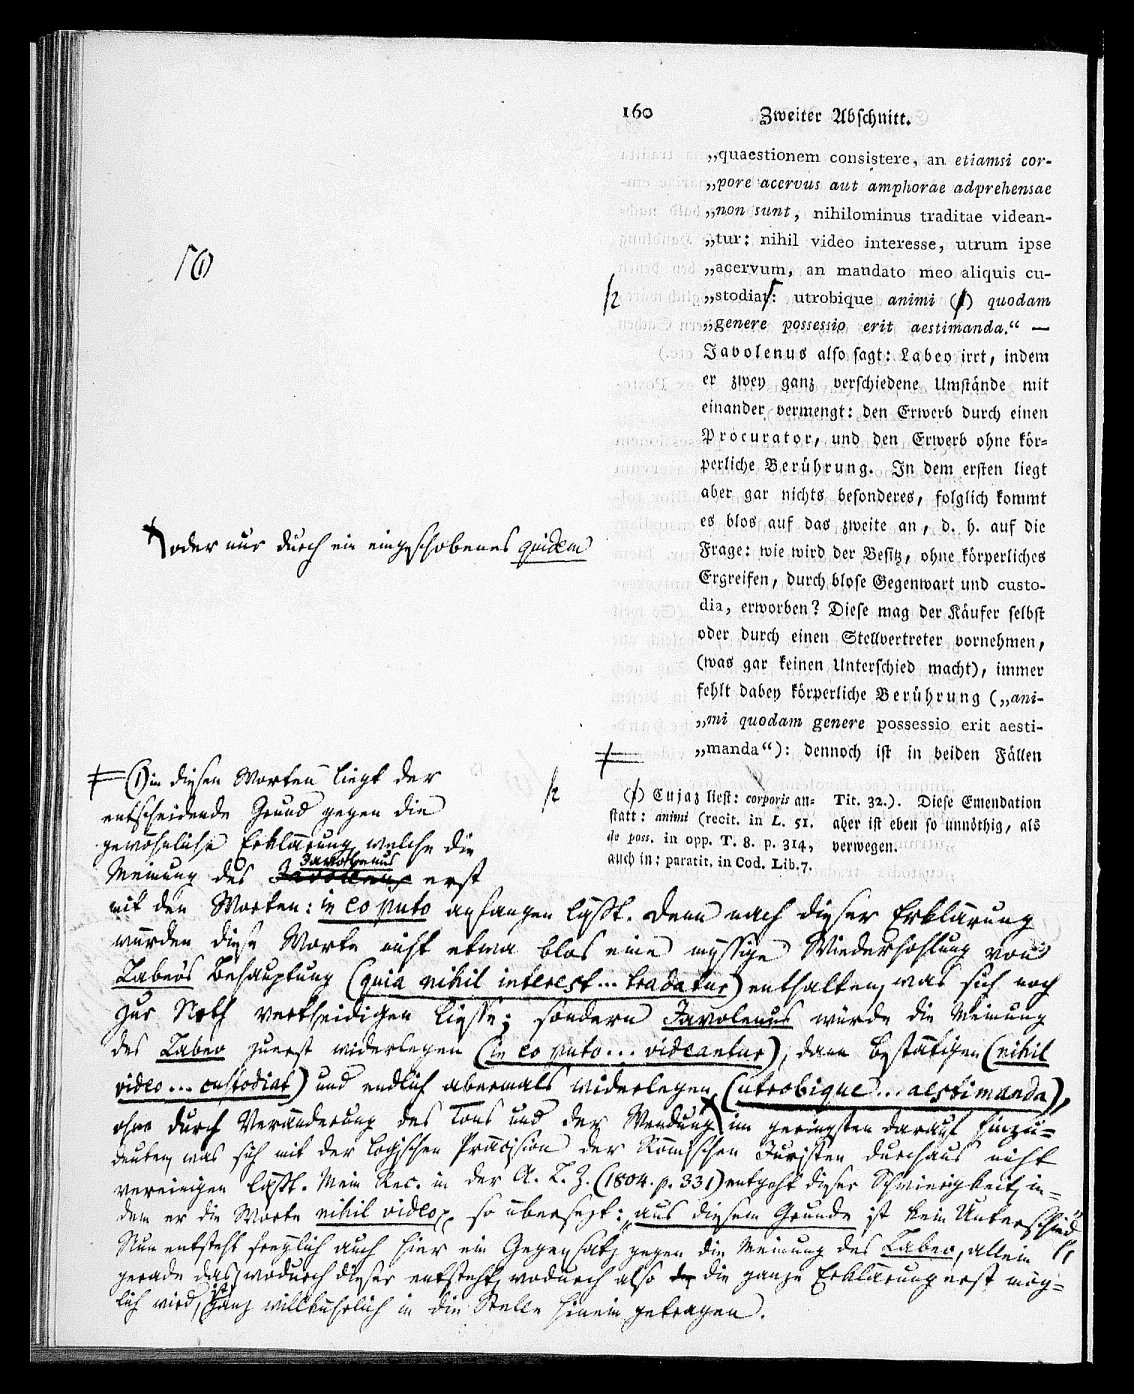 160 Zweiter Abschnitt.
„quaestionem consistere, an etiamsi cor-
„pore acervus aut amphorae adprehensae
„non sunt, nihilominus traditae videan-
„tur: nihil video interesse, utrum ipse
„acervum, an mandato meo aliquis cu-
„stodiat: utrobique animi (1) quodam
„genere possessio erit aestimanda.“ —
Javolenus also sagt: Labeo irrt, indem
er zwey ganz verschiedene Umstände mit
einander vermengt: den Erwerb durch einen
Procurator, und den Erwerb ohne kör-
perliche Berührung. In dem ersten liegt
aber gar nichts besonderes, folglich kommt
es blos auf das zweite an, d. h. auf die
Frage: wie wird der Besitz, ohne körperliches
Ergreifen, durch blose Gegenwart und custo-
dia, erworben? Diese mag der Käufer selbst
oder durch einen Stellvertreter vornehmen,
(was gar keinen Unterschied macht), immer
fehlt dabey körperliche Berührung („ani-
„mi quodam genere possessio erit aesti-
„manda“): dennoch ist in beiden Fällen
(1) Cujaz liest: corporis an-
statt: animi (recit. in L. 51.
de poss. in opp. T. 8. p. 314,
auch in: paratit. in Cod. Lib. 7.
Tit. 32.). Diese Emendation
aber ist eben so unnöthig, als
verwegen.
oder nur durch ein eingeschobenes quidem
(1) in diesen Worten liegt der
entscheidende Grund gegen die
gewöhnliche Erklärung, welche die
Meinung des Javolenus erst
mit den Worten: in eo puto anfangen läßt. Denn nach dieser Erklärung
würden diese Worte nicht etwa blos eine müssige Wiederhohlung von
Labeo's Behauptung (quia nihil interest... tradatur) enthalten, was sich noch
zur Noth vertheidigen liesse; sondern Javolenus würde die Meinung
des Labeo zuerst widerlegen (in eo puto... videantur), dann bestätigen (nihil
video... custodiat) und endlich abermals widerlegen (utrobique... aestimanda),
ohne durch Veränderung des Tons und der Wendung im geringsten darauf hinzu-
deuten, was sich mit der logischen Präcision der Römischen Juristen durchaus nicht
vereinigen läßt. Mein Rec. in der A. L. Z. (1804. p. 331) entgeht dieser Schwierigkeit, in-
dem er die Worte nihil video so übersezt: „aus diesem Grunde ist kein Unterschied“
Nun entsteht freylich auch hier ein Gegensatz gegen die Meinung des Labeo, allein
gerade das, wodurch dieser entsteht, wodurch also die ganze Erklärung erst mög-
lich wird, ist ganz willkührlich in die Stelle hinein getragen.